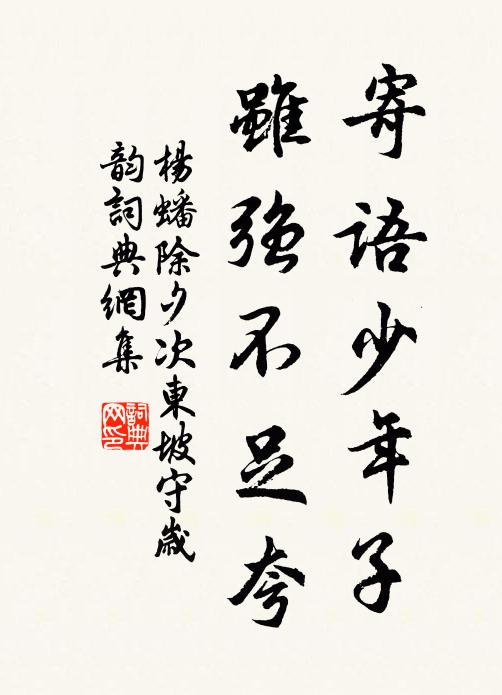 寄語少年子
雖強不足夸
楊蟠除夕次東坡守歲
韵詞典網集
詞典
网印